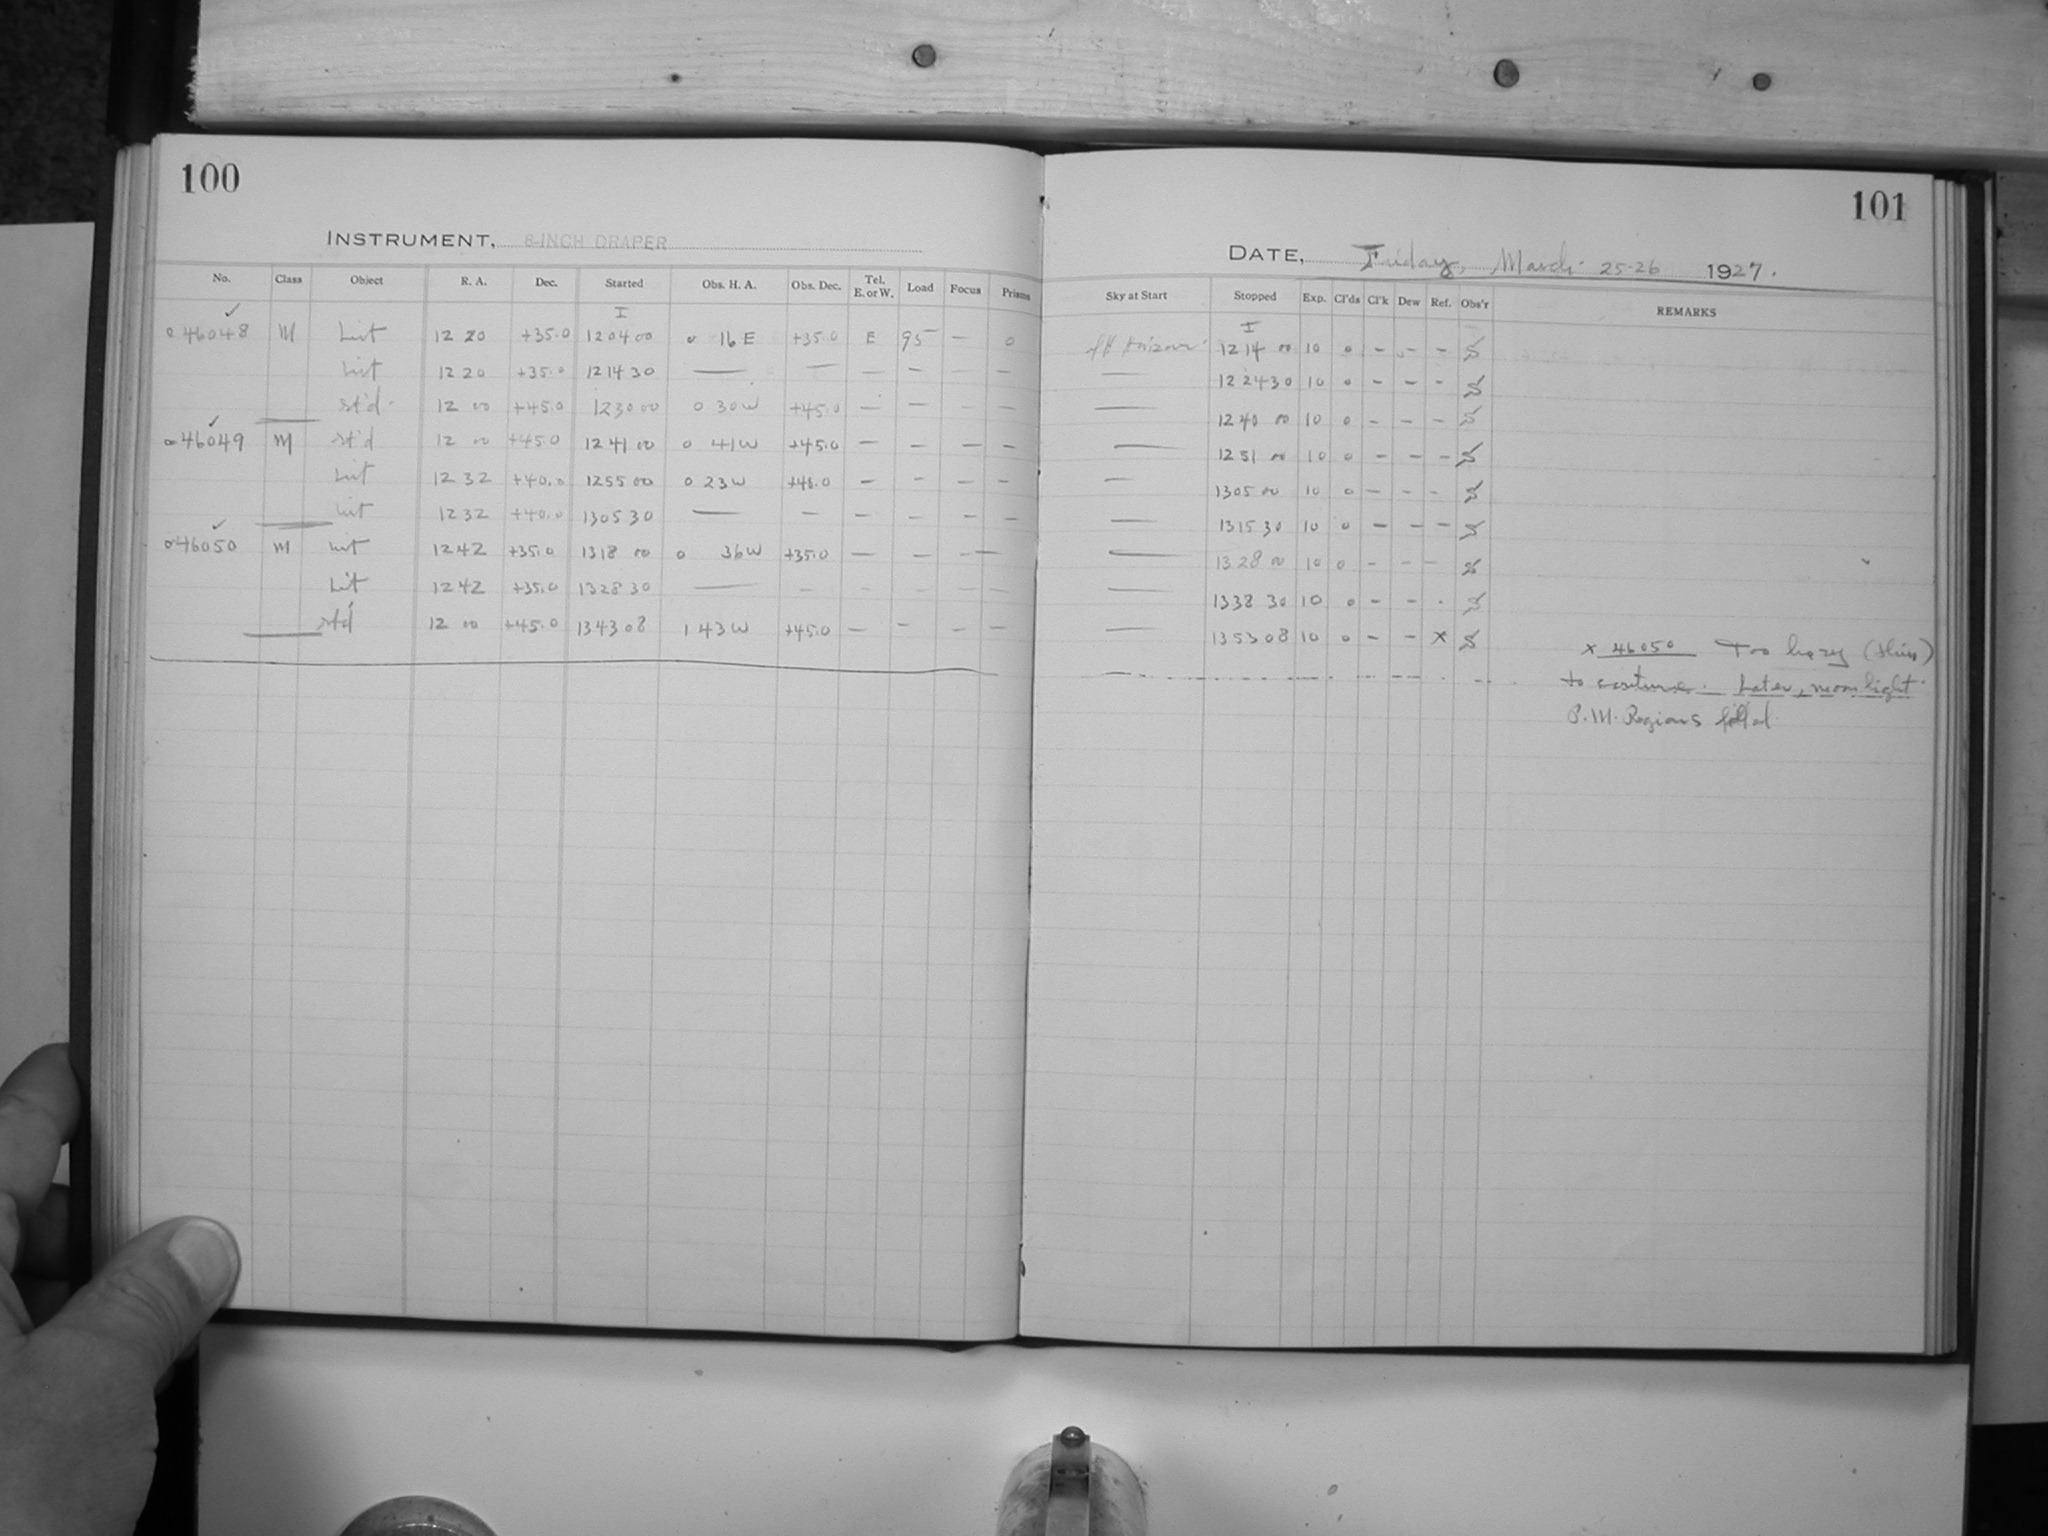 100
INSTRUMENT, 8-INCH DRAPER
No. Class Object R. A. Dec. Started Obs. H. A. Obs. Dec. Tel. E. or W. Load Focus Prisms
I
46048 M 12 20 +35.0 12 04 00 0 16 E +35.0 E 95 — 0
12 20 +35.0 12 14 30 — — — — — —
st'd 12 00 +45.0 12 30 00 0 30 W +45.0 — — — —
46049 M st'd 12 00 +45.0 12 41 00 0 41 W +45.0 — — — —
12 32 +40.0 12 55 00 0 23 W — — — —
12 32 +40.0 13 05 30 — — — — — —
46050 M 12 42 +35.0 13 18 00 0 36 W +35.0 — — — —
12 42 +35.0 13 28 30 — — — — — —
st'd 12 00 +45.0 13 43 08 1 43 W +45.0 — — — —
101
DATE, Friday, March 25-26 1927.
Sky at Start Stopped Exp. Cl'ds Cl'k Dew Ref. Obs'r REMARKS
I
12 14 00 10 0 — — —
— 12 24 30 10 0 — — —
— 12 40 00 10 0 — — —
— 12 51 00 10 0 — — —
— 13 05 00 10 0 — — —
— 13 15 30 10 0 — — —
— 13 28 00 10 0 — — —
— 13 38 30 10 0 — —
— 13 53 08 10 0 — — x
x 46050 Too hazy
to continue. Later, moonlight.
P.M. Regions